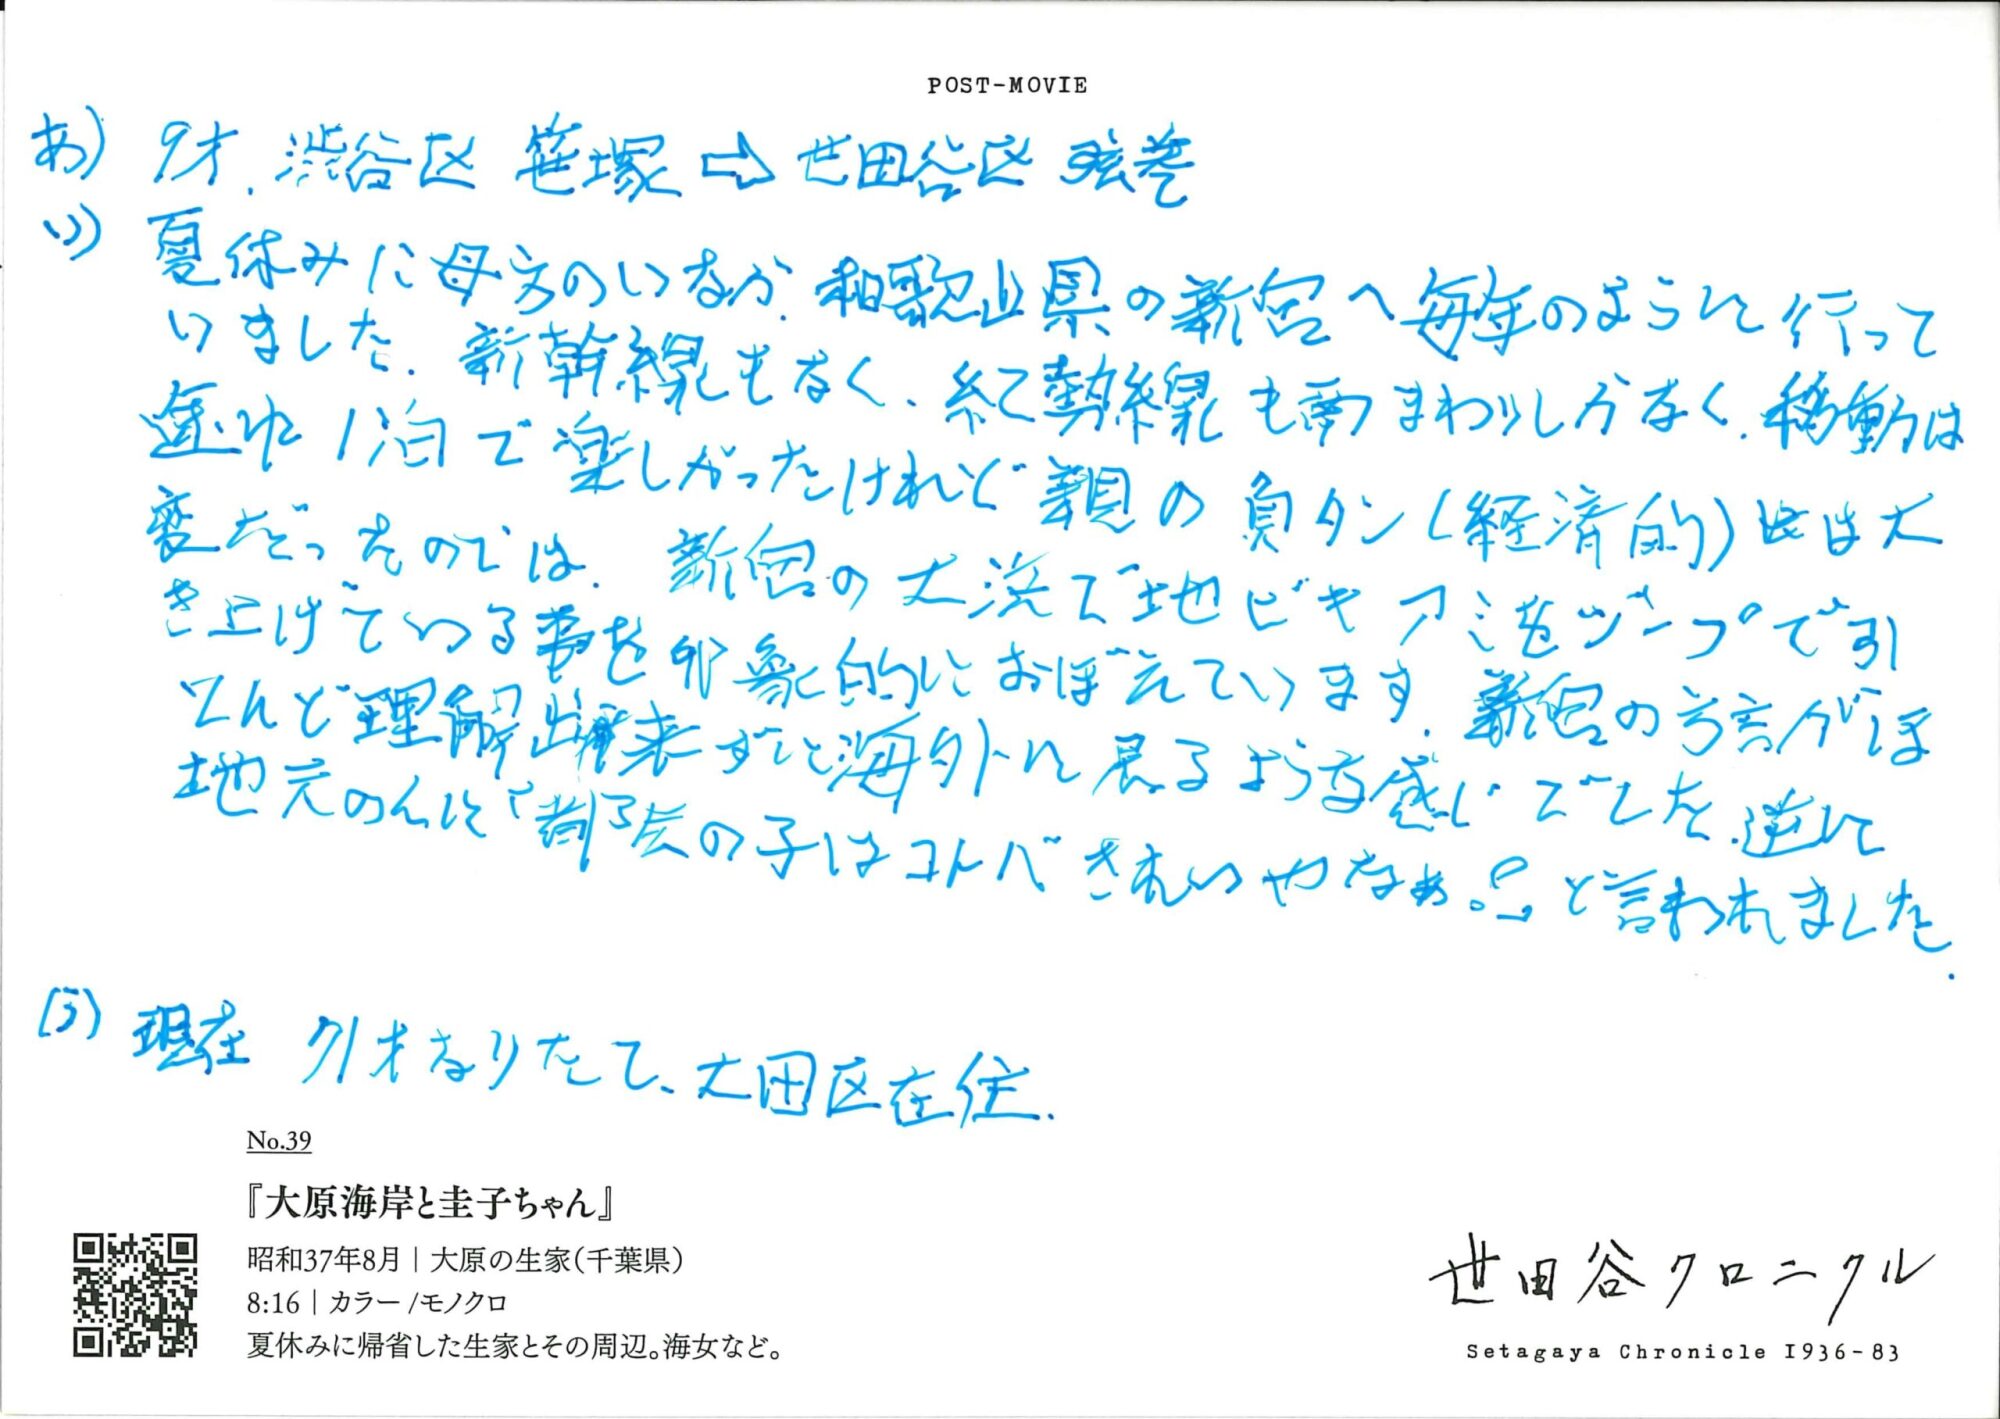 POST-MOVIE
あ) 9才. 渋谷区 笹塚 ⇨ 世田谷区 弦巻
い) 夏休みに母方のいなか. 和歌山県の新宮へ毎年のように行って
いました. 新幹線もなく、紀勢線も西まわりしかなく. 移動は
車中1泊で楽しかったけれど親の負タン(経済的)は大
変だったのでは. 新宮の大浜で地ビキアミをジープで引
き上げている事を印象的におぼえています. 新宮の方言がほ
とんど理解出来ずに海外に居るような感じでした. 逆に
地元の人に「都会の子はコトバきれいやなぁ。」と言われました.
(う) 現在 71才なりたて、大田区在住.
No.39
『大原海岸と圭子ちゃん』
昭和37年8月|大原の生家(千葉県)
8:16|カラー/モノクロ
夏休みに帰省した生家とその周辺。海女など。
世田谷クロニクル
Setagaya Chronicle 1936-83